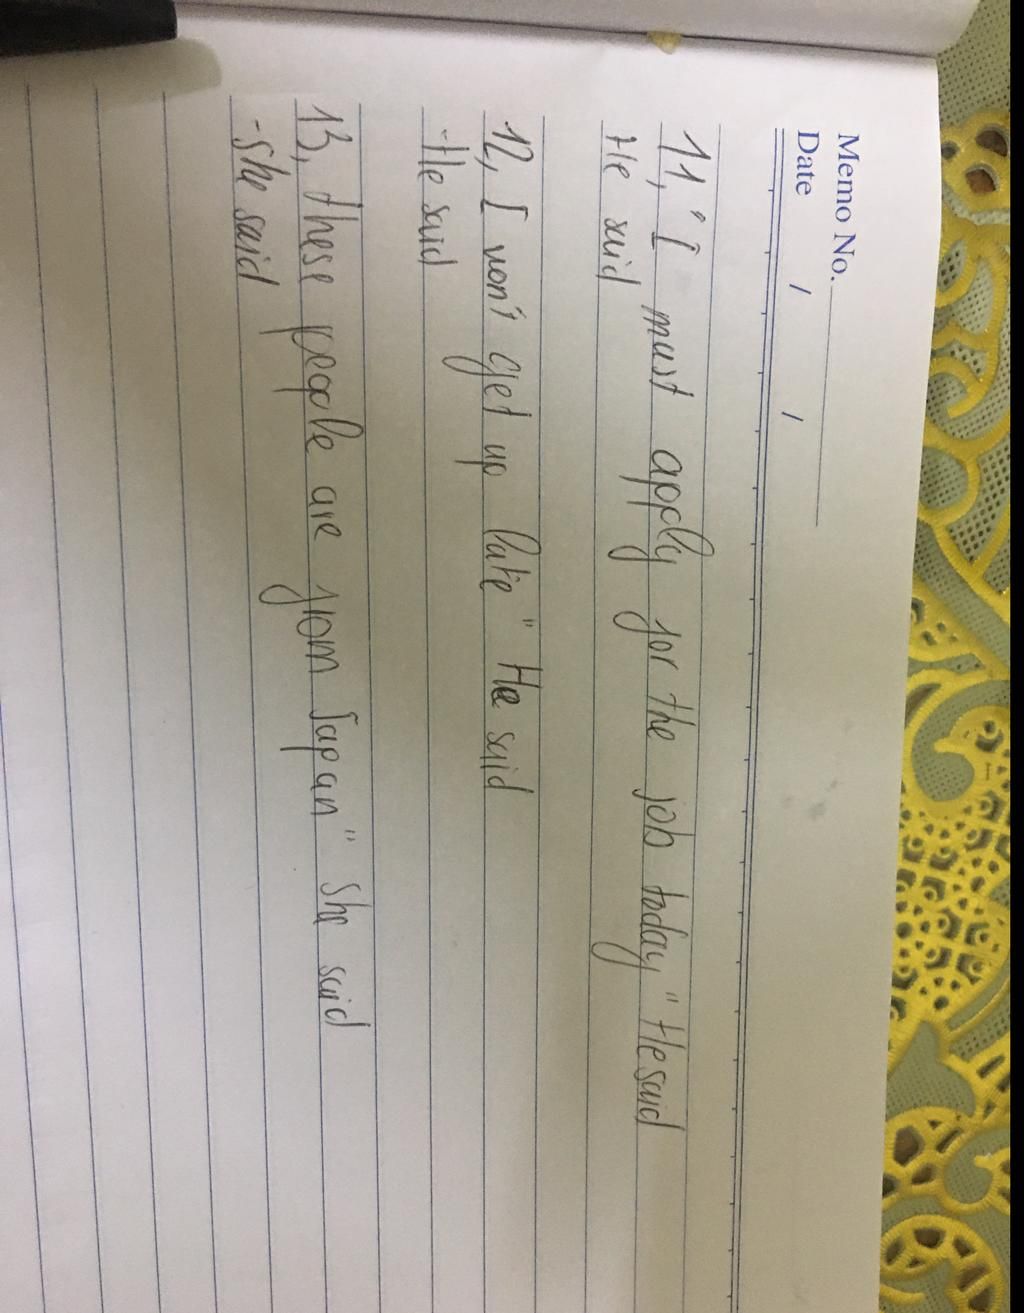 Memo No.
Date / /
11, "I must apply for the job today" He said
He said
12, I won't get up late" He said
-He said
13, these people are from Japan" she said
-she said